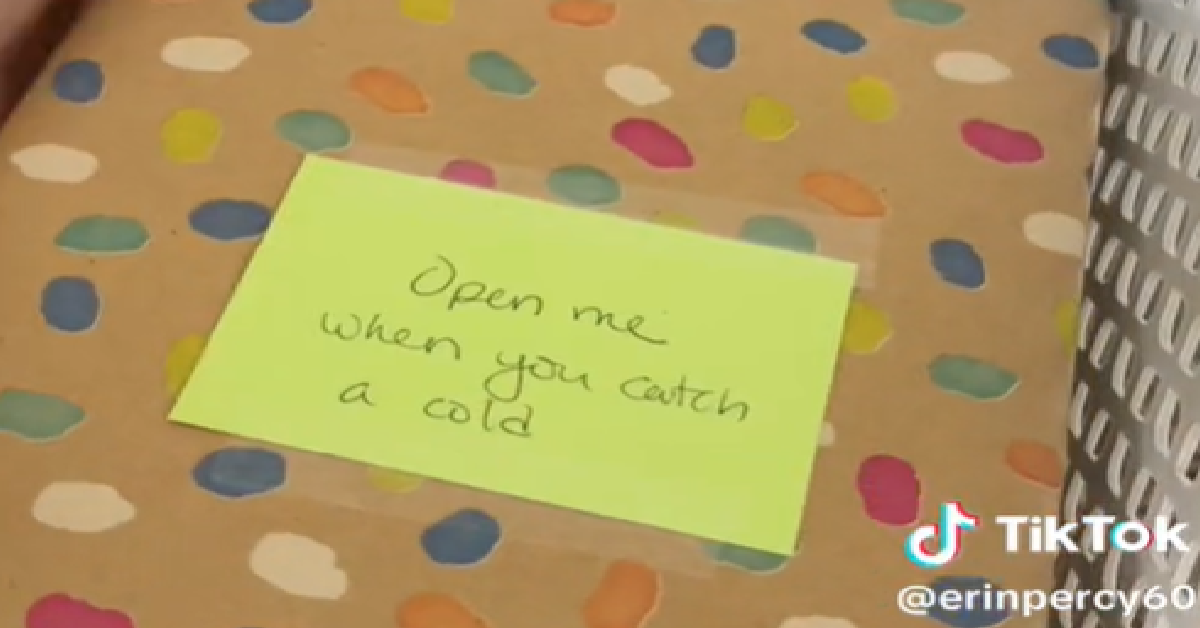 Open me
when you catch
a cold
TikTok
@erinpercy60